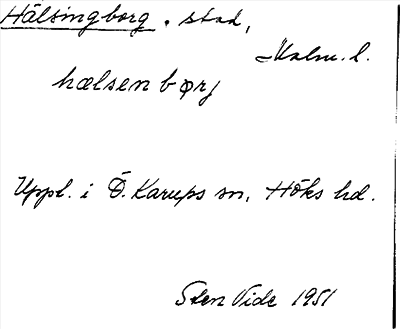 Hälsingborg, stad,
Malm. l.
hælsenbørj
Uppl. i Ö. Karups sn, Höks hd.
Sten Vide 1951